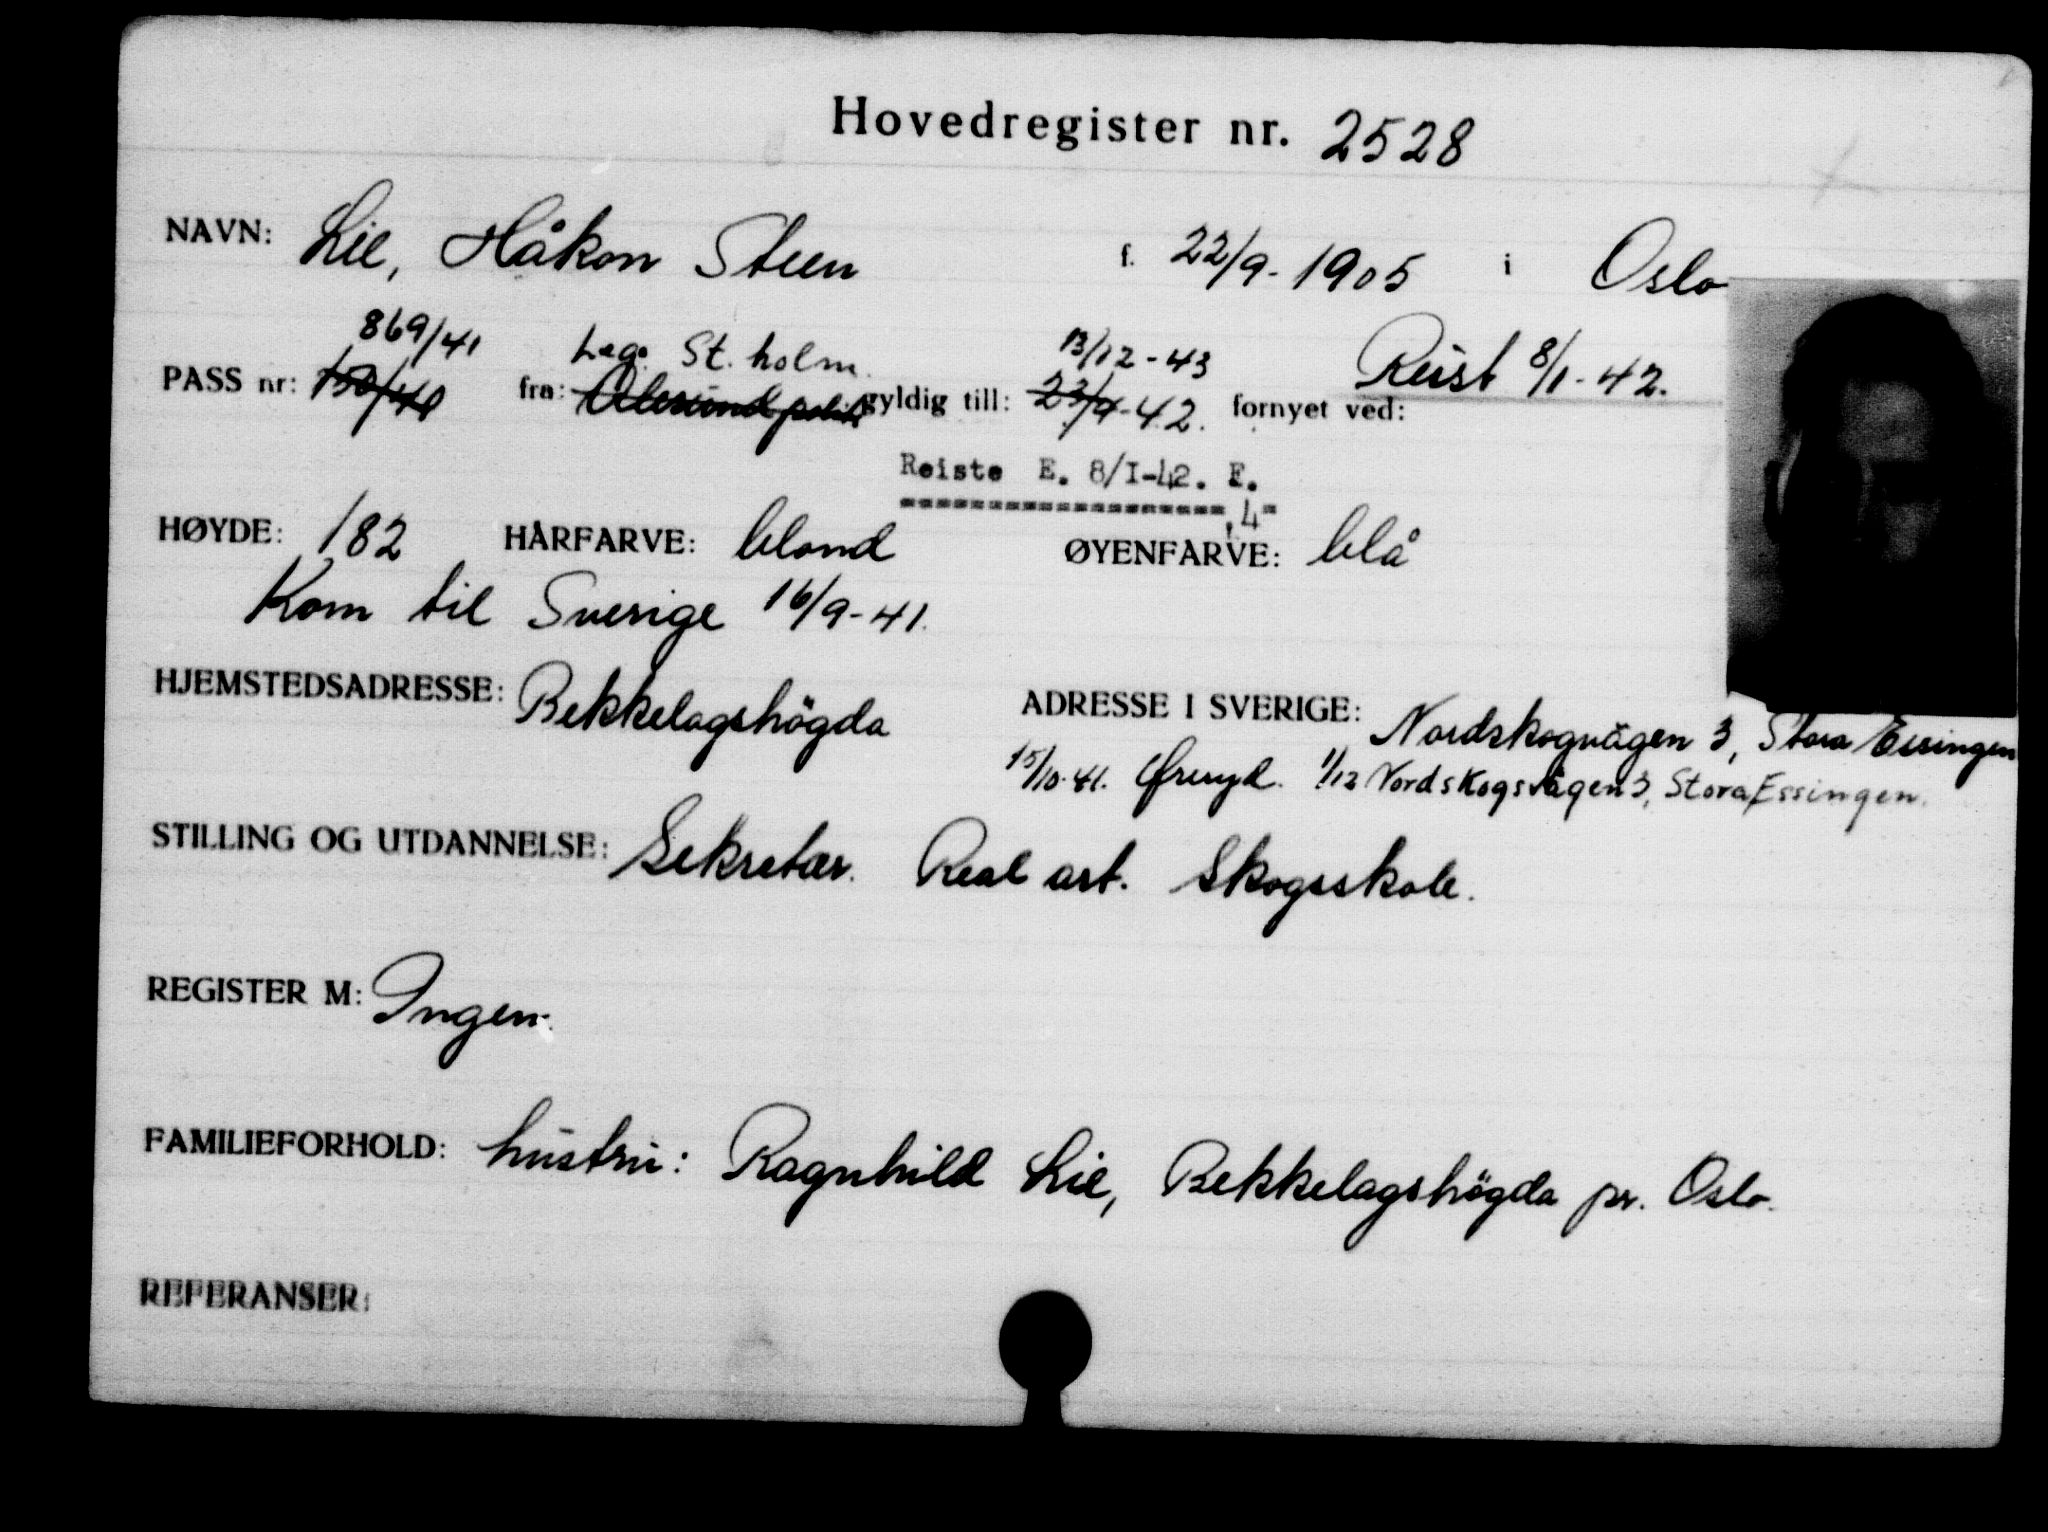 Hovedregister nr. 2528
NAVN: Lie, Håkon Steen f. 22/9-1905 i Oslo
869/41 Leg. St. holm. 13/12-43 Reist 8/1-42.
PASS nr: fra: Ålesund gyldig till: 23/9-42. fornyet ved:
Reiste E. 8/I-42. E.
HØYDE: 182 HÅRFARVE: blond ØYENFARVE: blå
Kom til Sverige 16/9-41.
HJEMSTEDSADRESSE: Bekkelagshögda ADRESSE I SVERIGE: Nordskogvägen 3, Stora Essingen
15/10-41. Öreryd. 1/12 Nordskogsvägen 3, Stora Essingen.
STILLING OG UTDANNELSE: Sekretær. Real art. Skogsskole.
REGISTER M: Ingen.
FAMILIEFORHOLD: hustru: Ragnhild Lie, Bekkelagshögda pr. Oslo.
REFERANSER: